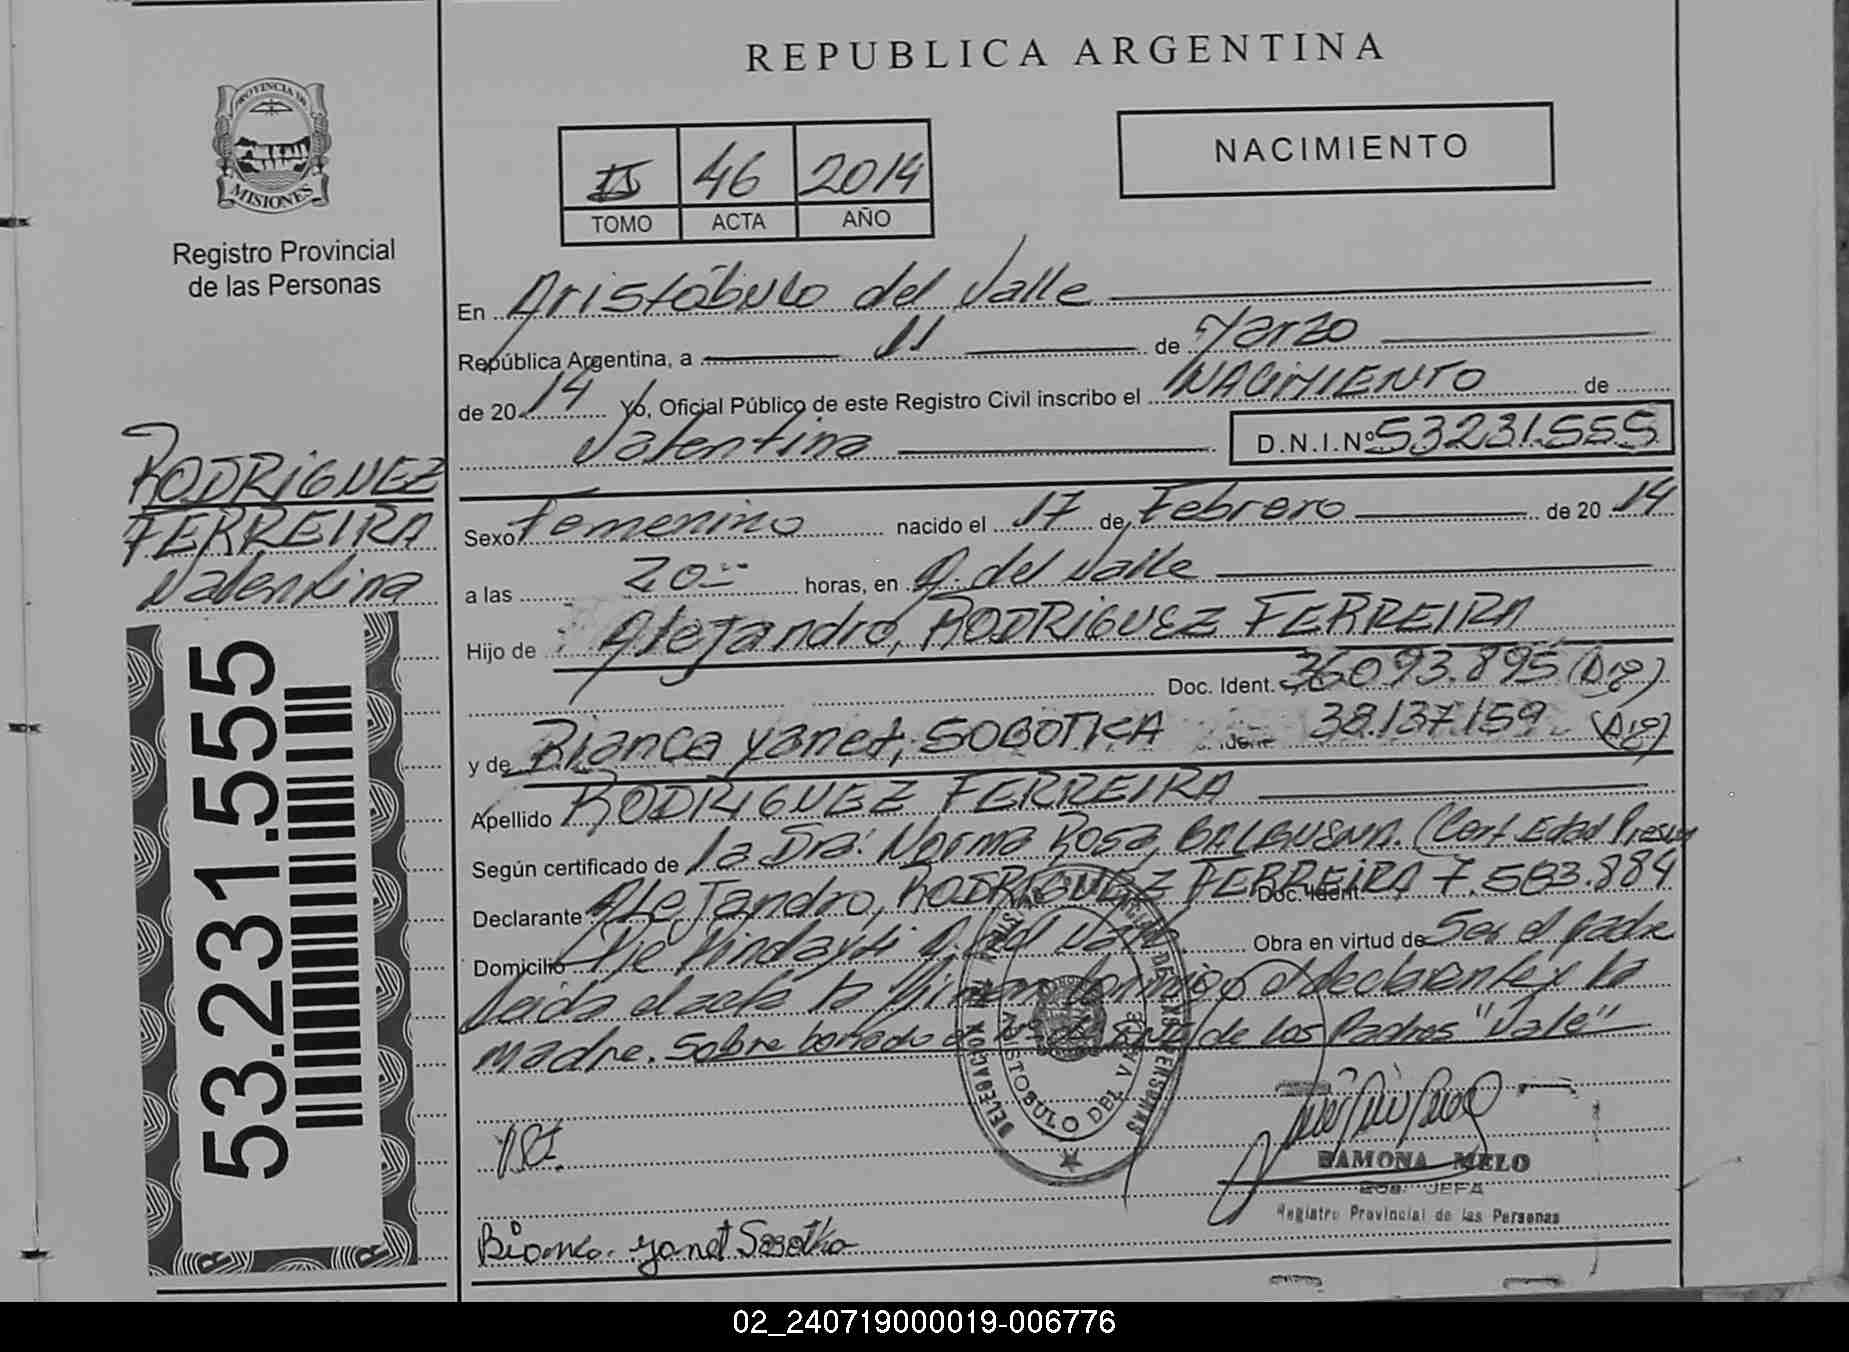 REPUBLICA ARGENTINA
PROVINCIA DE
MISIONES
Registro Provincial
de las Personas
II 46 2014
TOMO ACTA AÑO
NACIMIENTO
En Aristóbulo del Valle
República Argentina, a 11 de Marzo
de 2014 Yo, Oficial Público de este Registro Civil inscribo el NACIMIENTO de
Valentina D.N.I.Nº 53231.555
RODRIGUEZ
FERREIRA
Valentina
53.231.555
Sexo Femenino nacido el 17 de Febrero de 2014
a las 20 horas, en A. del Valle
Hijo de Alejandro, RODRIGUEZ FERREIRA
Doc. Ident. 36093.895 (Arg)
y de Bianca Yanet, SOBOTKA Ident 38.137.159 (Arg)
Apellido RODRIGUEZ FERREIRA
Según certificado de la Dra: Norma Rosa, BALBUENA. (Cert. Edad Presun
Declarante Alejandro, RODRIGUEZ FERREIRA Doc. Ident. 7.583.884
Domicilio A. del Valle Obra en virtud de Ser el padre
Leida el acta la firman conmigo el declarante y la
madre. Sobre borrado de los Padres "Vale"
DELEGACION
ARISTOBULO DEL VALLE
RAMONA MELO
JEFA
Registro Provincial de las Personas
Bianca Yanet Sobotka
02_240719000019-006776